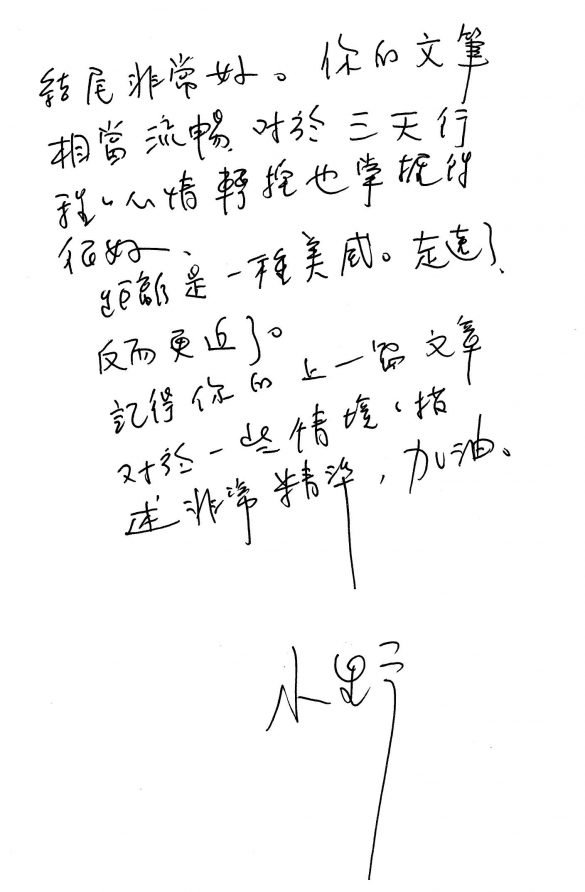 結尾非常好。你的文筆
相當流暢,对於三天行
程、心情轉捩也掌握得
很好、
距離是一種美感。走遠了、
反而更近了。
記得你的上一篇文章
对於一些情境、描
述非常精準,加油。
小野